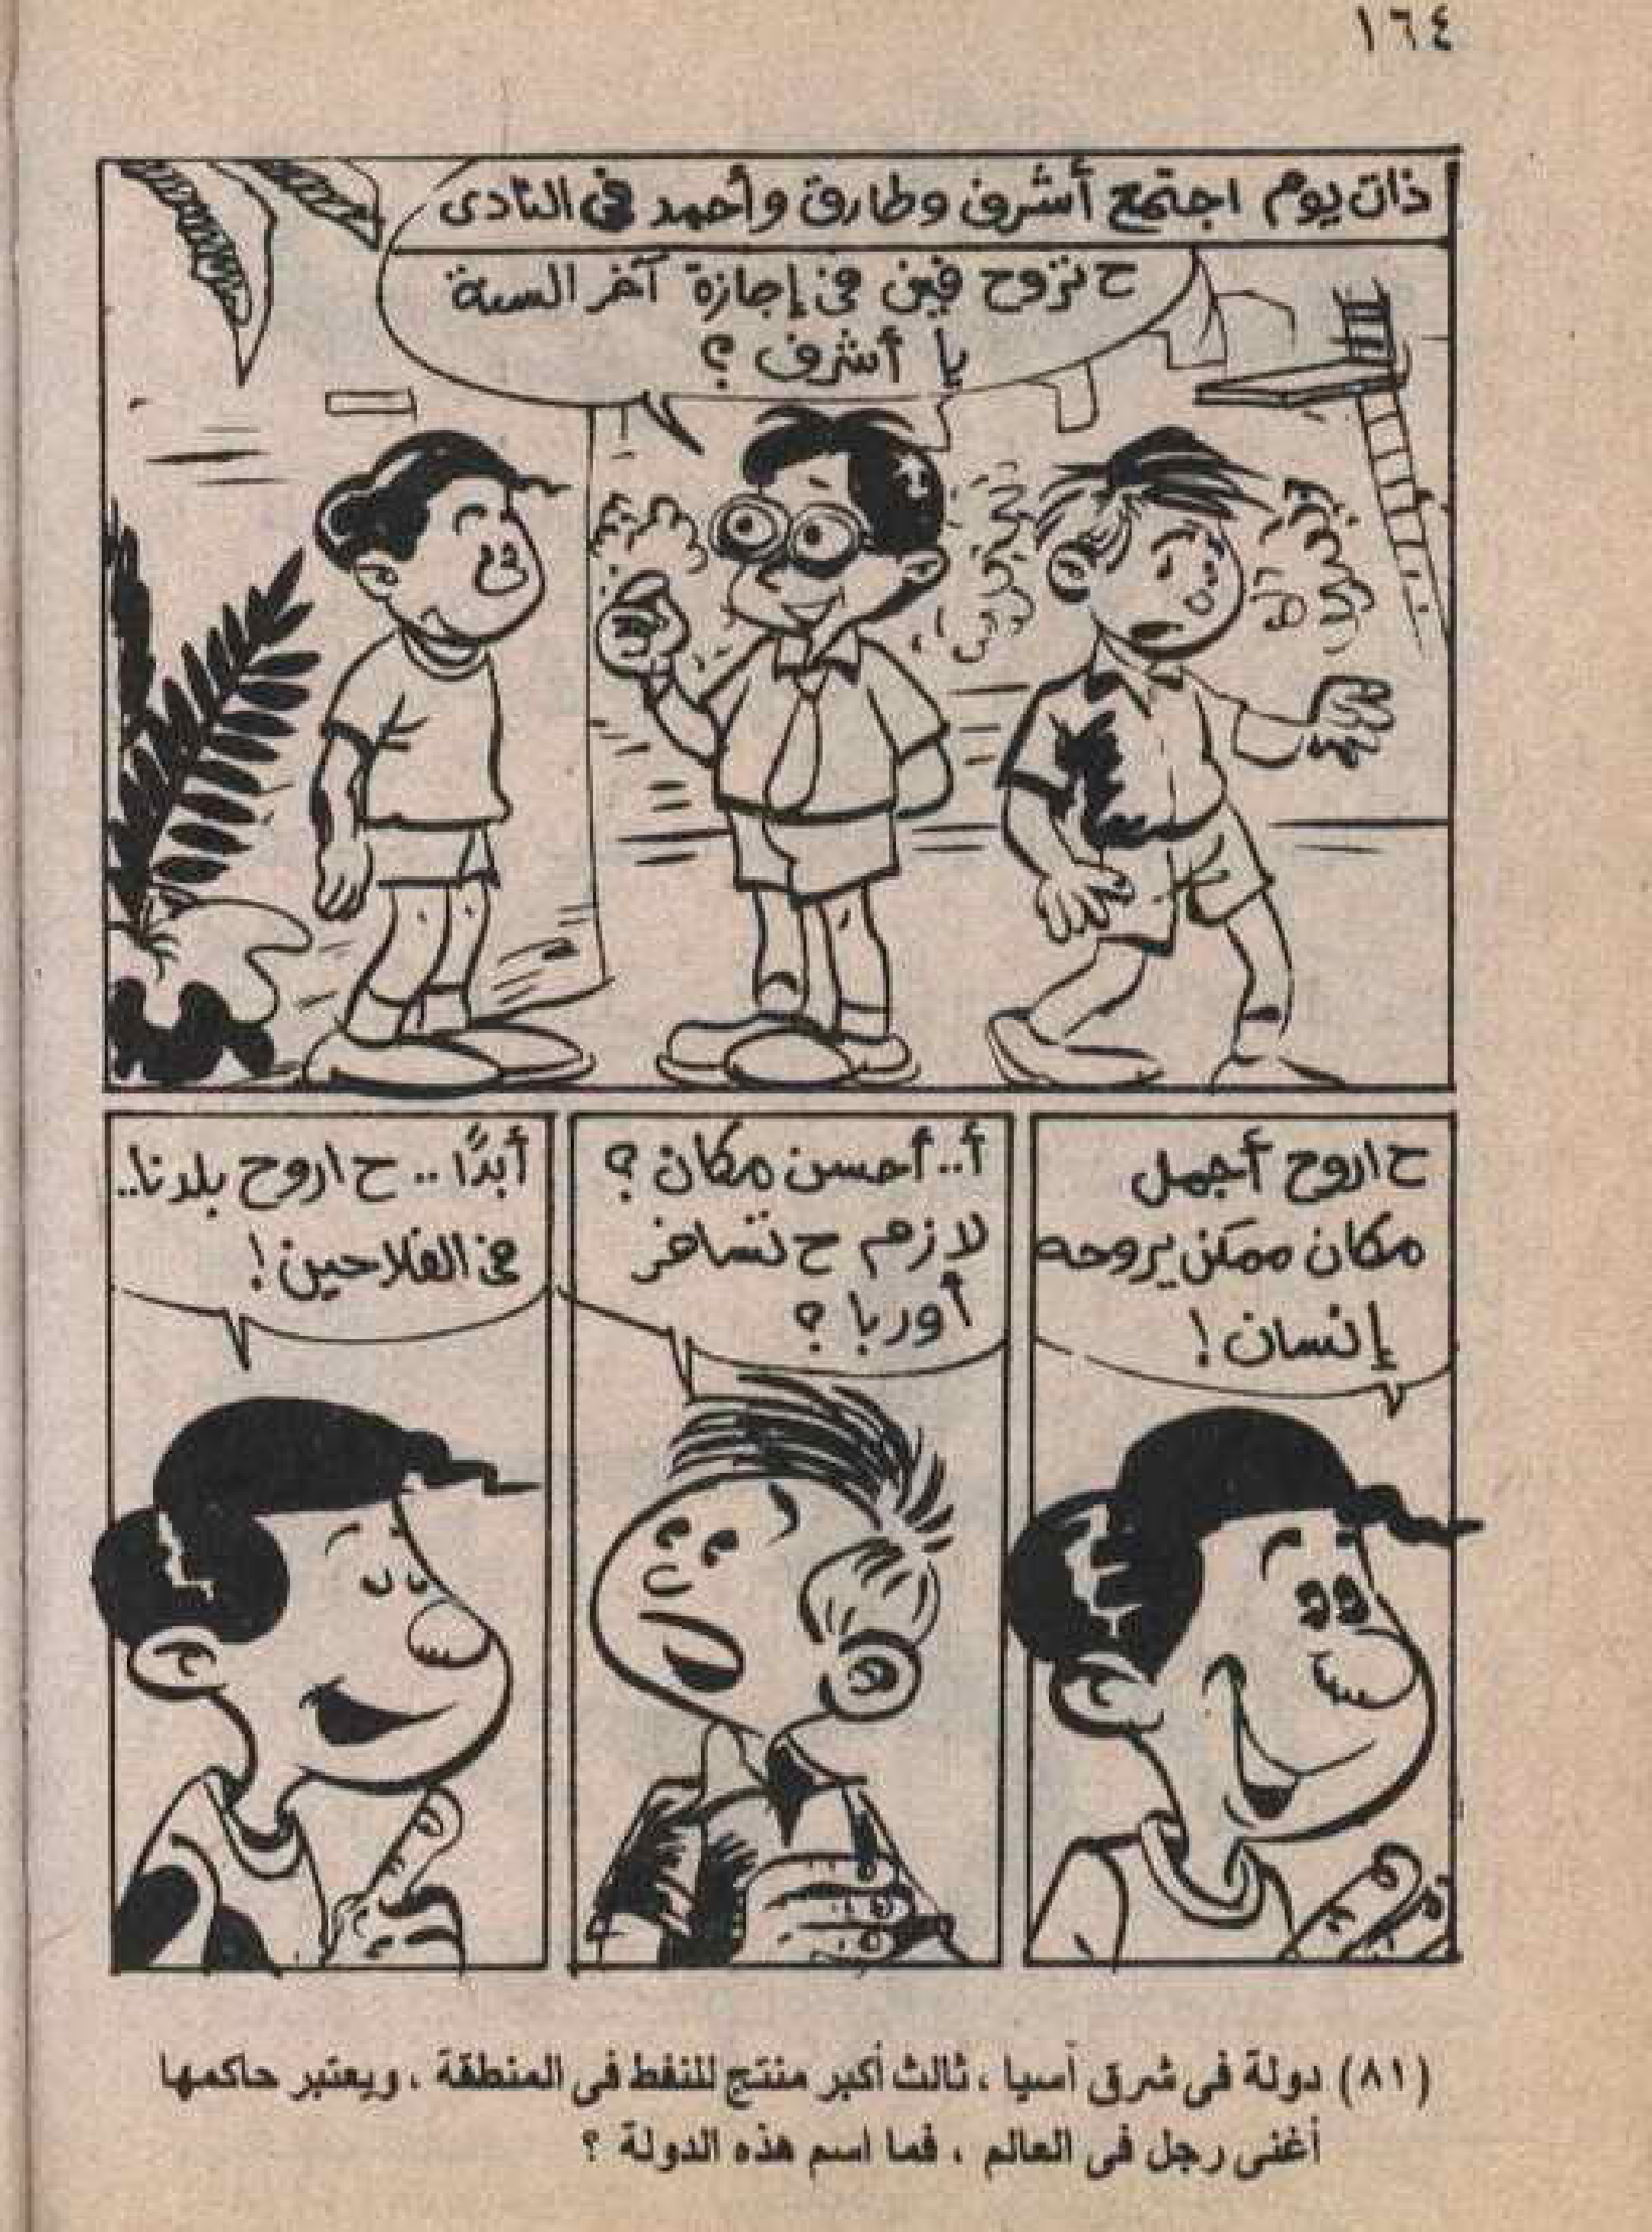 ١٦٤
ذات يوم اجتمع أشرف وطارق وأحمد فى النادى
ح تروح فين فى إجازة آخر السنة
يا أشرف ؟
ح اروح أجمل
مكان ممكن يروحه
إنسان !
أ.. أحسن مكان ؟
لازم ح تسافر
أوربا ؟
أبدًا .. ح اروح بلدنا..
فى الفلاحين !
(٨١) دولة فى شرق آسيا ، ثالث أكبر منتج للنفط فى المنطقة ، ويعتبر حاكمها
أغنى رجل فى العالم ، فما اسم هذه الدولة ؟